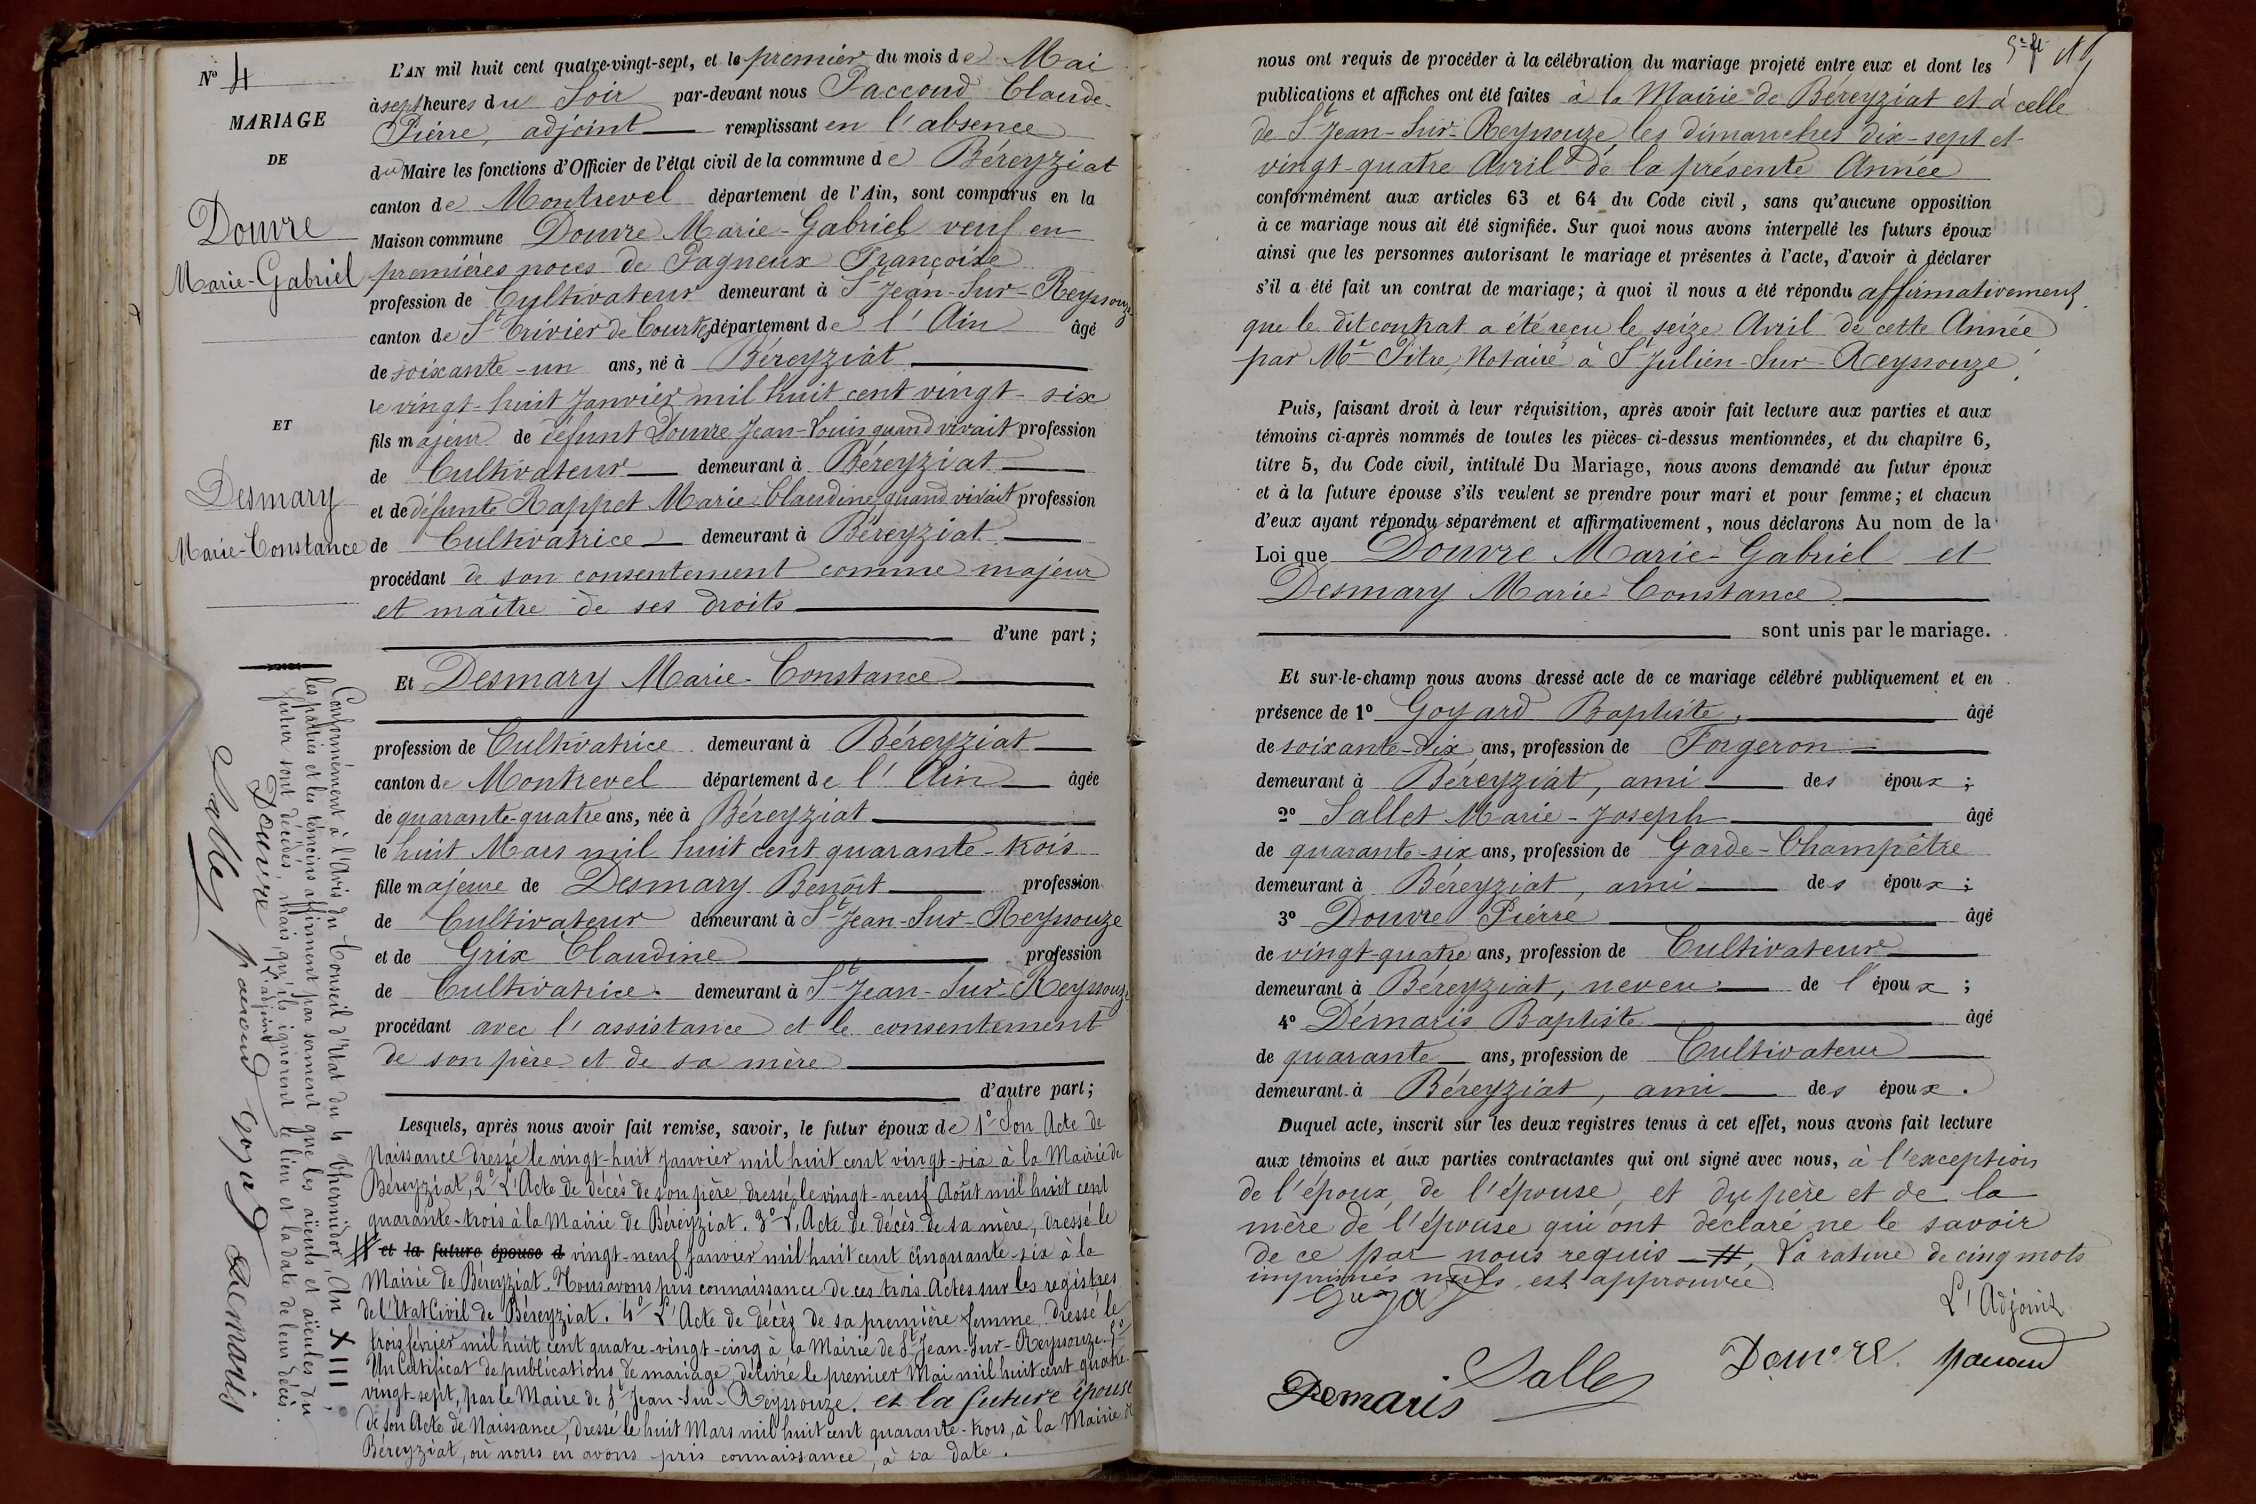 Nº 4
MARIAGE
DE
Douvre
Marie-Gabriel
ET
Desmary
Marie-Constance
L'AN mil huit cent quatre-vingt-sept, et le premier du mois de Mai
à sept heures du Soir par-devant nous Paccoud Claude-
Pierre, adjoint remplissant en l'absence
du Maire les fonctions d'Officier de l'état civil de la commune de Béreyziat
canton de Montrevel département de l'Ain, sont comparus en la
Maison commune Douvre Marie-Gabriel veuf en
premières noces de Pagneux Françoise
profession de Cultivateur demeurant à St Jean-Sur-Reyssouze
canton de St Trivier de Courtes département de l'Ain âgé
de soixante-un ans, né à Béreyziat
le vingt-huit Janvier mil huit cent vingt-six
fils majeur de défunt Douvre Jean-Louis quand vivait profession
de Cultivateur demeurant à Béreyziat
et de défunte Rappet Marie-Claudine, quand vivait profession
de Cultivatrice demeurant à Béreyziat
procédant de son consentement comme majeur
et maître de ses droits
d'une part ;
Et Desmary Marie-Constance
profession de Cultivatrice demeurant à Béreyziat
canton de Montrevel département de l'Ain âgée
de quarante-quatre ans, née à Béreyziat
le huit Mars mil huit cent quarante-trois
fille majeure de Desmary Benoît profession
de Cultivateur demeurant à St Jean-Sur-Reyssouze
et de Grix Claudine profession
de Cultivatrice demeurant à St Jean-Sur-Reyssouze
procédant avec l'assistance et le consentement
de son père et de sa mère
d'autre part ;
Lesquels, après nous avoir fait remise, savoir, le futur époux de 1º Son Acte de
Naissance dressé le vingt-huit Janvier mil huit cent vingt-six à la Mairie de
Béreyziat, 2º L'Acte de décès de son père, dressé le vingt-neuf Août mil huit cent
quarante-trois à la Mairie de Béreyziat. 3º L'Acte de décès de sa mère, dressé le
# et la future épouse d vingt-neuf Janvier mil huit cent cinquante-six à la
Mairie de Béreyziat. Nous avons pris connaissance de ces trois Actes sur les registres
de l'Etat Civil de Béreyziat. 4º L'Acte de décès de sa première femme, dressé le
trois février mil huit cent quatre-vingt-cinq à la Mairie de St Jean-Sur-Reyssouze. 5º
Un Certificat de publications de mariage, délivré le premier Mai mil huit cent quatre-
vingt-sept, par le Maire de St Jean-Sur-Reyssouze. et la future épouse
de son Acte de Naissance, dressé le huit Mars mil huit cent quarante-trois, à la Mairie de
Béreyziat, où nous en avons pris connaissance, à sa date.
Conformément à l'Avis du Conseil d'Etat du 4 Thermidor, An XIII,
les parties et les témoins affirment par serment que les aïeuls et aïeules du
futur sont décédés, mais qu'ils ignorent le lieu et la date de leur décès.
L'adjoint
Douvre paccoud Goyard
Salles Demaris
nous ont requis de procéder à la célébration du mariage projeté entre eux et dont les
publications et affiches ont été faites à la Mairie de Béreyziat et à celle
de St Jean-Sur-Reyssouze, les dimanches dix-sept et
vingt-quatre Avril de la présente Année
conformément aux articles 63 et 64 du Code civil, sans qu'aucune opposition
à ce mariage nous ait été signifiée. Sur quoi nous avons interpellé les futurs époux
ainsi que les personnes autorisant le mariage et présentes à l'acte, d'avoir à déclarer
s'il a été fait un contrat de mariage ; à quoi il nous a été répondu affirmativement
que le dit contrat a été reçu le seize Avril de cette Année
par Me Pitre, Notaire à St Julien-Sur-Reyssouze.
Puis, faisant droit à leur réquisition, après avoir fait lecture aux parties et aux
témoins ci-après nommés de toutes les pièces ci-dessus mentionnées, et du chapitre 6,
titre 5, du Code civil, intitulé Du Mariage, nous avons demandé au futur époux
et à la future épouse s'ils veulent se prendre pour mari et pour femme ; et chacun
d'eux ayant répondu séparément et affirmativement, nous déclarons Au nom de la
Loi que Douvre Marie-Gabriel et
Desmary Marie-Constance
sont unis par le mariage.
Et sur-le-champ nous avons dressé acte de ce mariage célébré publiquement et en
présence de 1º Goyard Baptiste, âgé
de soixante-dix ans, profession de Forgeron
demeurant à Béreyziat, ami des époux ;
2º Sallet Marie-Joseph âgé
de quarante-six ans, profession de Garde-Champêtre
demeurant à Béreyziat, ami des époux ;
3º Douvre Pierre âgé
de vingt-quatre ans, profession de Cultivateur
demeurant à Béreyziat, neveu de l'époux ;
4º Démaris Baptiste âgé
de quarante ans, profession de Cultivateur
demeurant à Béreyziat, ami des époux.
Duquel acte, inscrit sur les deux registres tenus à cet effet, nous avons fait lecture
aux témoins et aux parties contractantes qui ont signé avec nous, à l'exception
de l'époux, de l'épouse, et du père et de la
mère de l'épouse qui ont déclaré ne le savoir
de ce par nous requis # La rature de cinq mots
imprimés nuls est approuvée
L'Adjoint
Goyard
Douvre paccoud
Demaris Salles